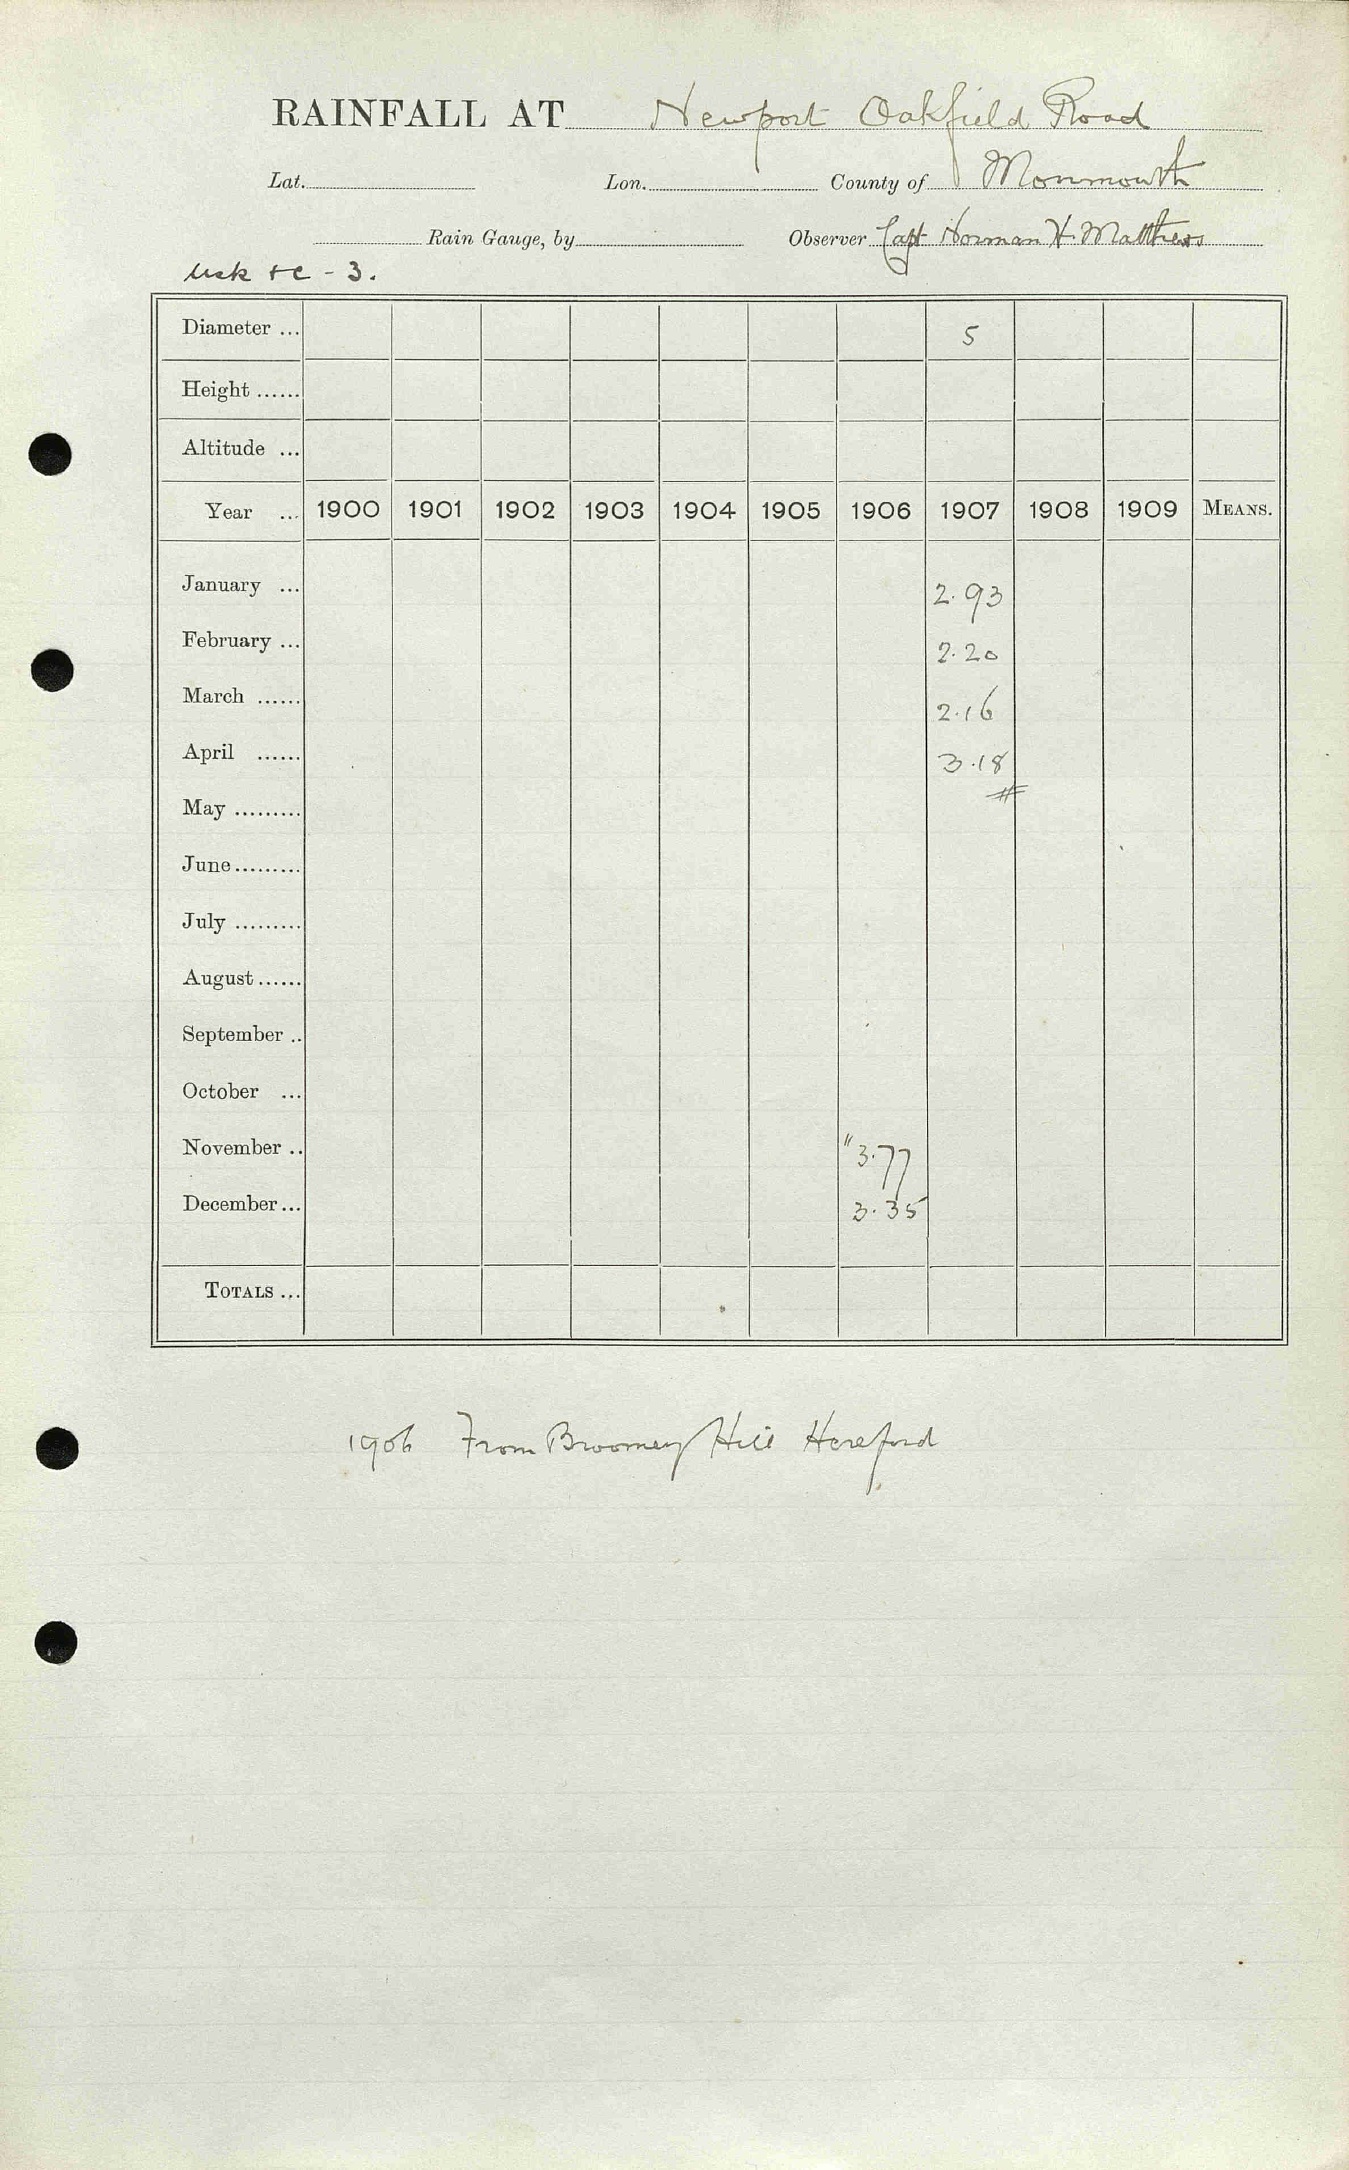 RAINFALL AT Newport Oakfield Road
Lat. Lon. County of Monmouth
Rain Gauge, by Observer Capt Norman H. Matthews
Usk &c - 3.
Diameter ... 5
Height ......
Altitude ...
Year ... 1900 1901 1902 1903 1904 1905 1906 1907 1908 1909 MEANS.
January ... 2.93
February ... 2.20
March ...... 2.16
April ...... 3.18
May .........
June.........
July .........
August......
September ..
October ...
November .. " 3.77
December... 3.35
TOTALS ...
1906 From Broomey Hill Hereford